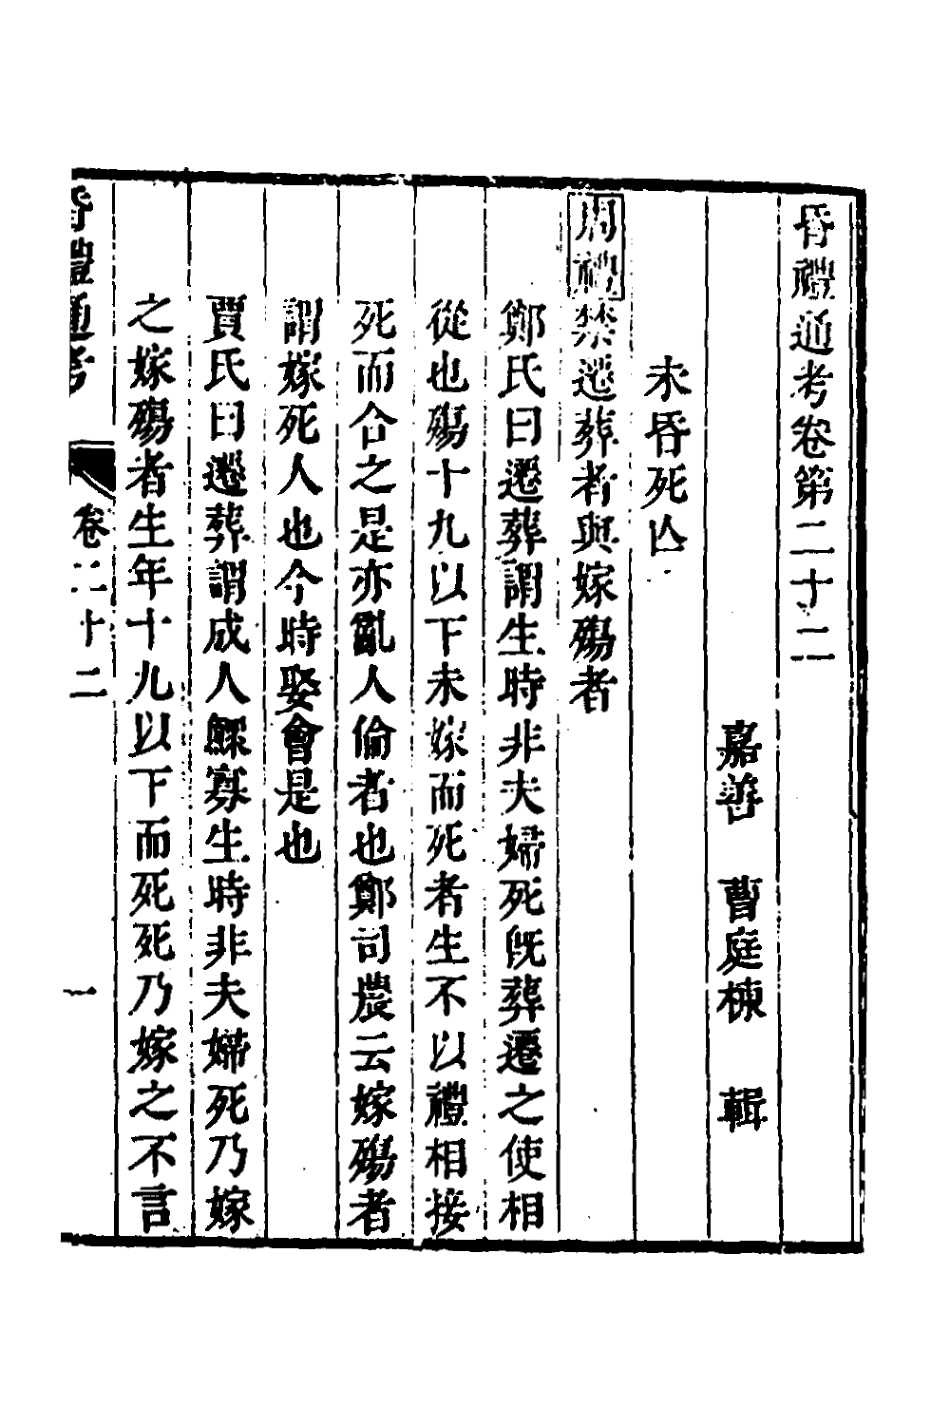 昏禮通考卷第二十二
嘉善　曹庭棟　輯
未昏死亾
周禮禁遷葬者與嫁殤者
鄭氏曰遷葬謂生時非夫婦死旣葬遷之使相
從也殤十九以下未嫁而死者生不以禮相接
死而合之是亦亂人倫者也鄭司農云嫁殤者
謂嫁死人也今時娶會是也
賈氏曰遷葬謂成人鰥寡生時非夫婦死乃嫁
之嫁殤者生年十九以下而死死乃嫁之不言
昏禮通考　卷二十二　一